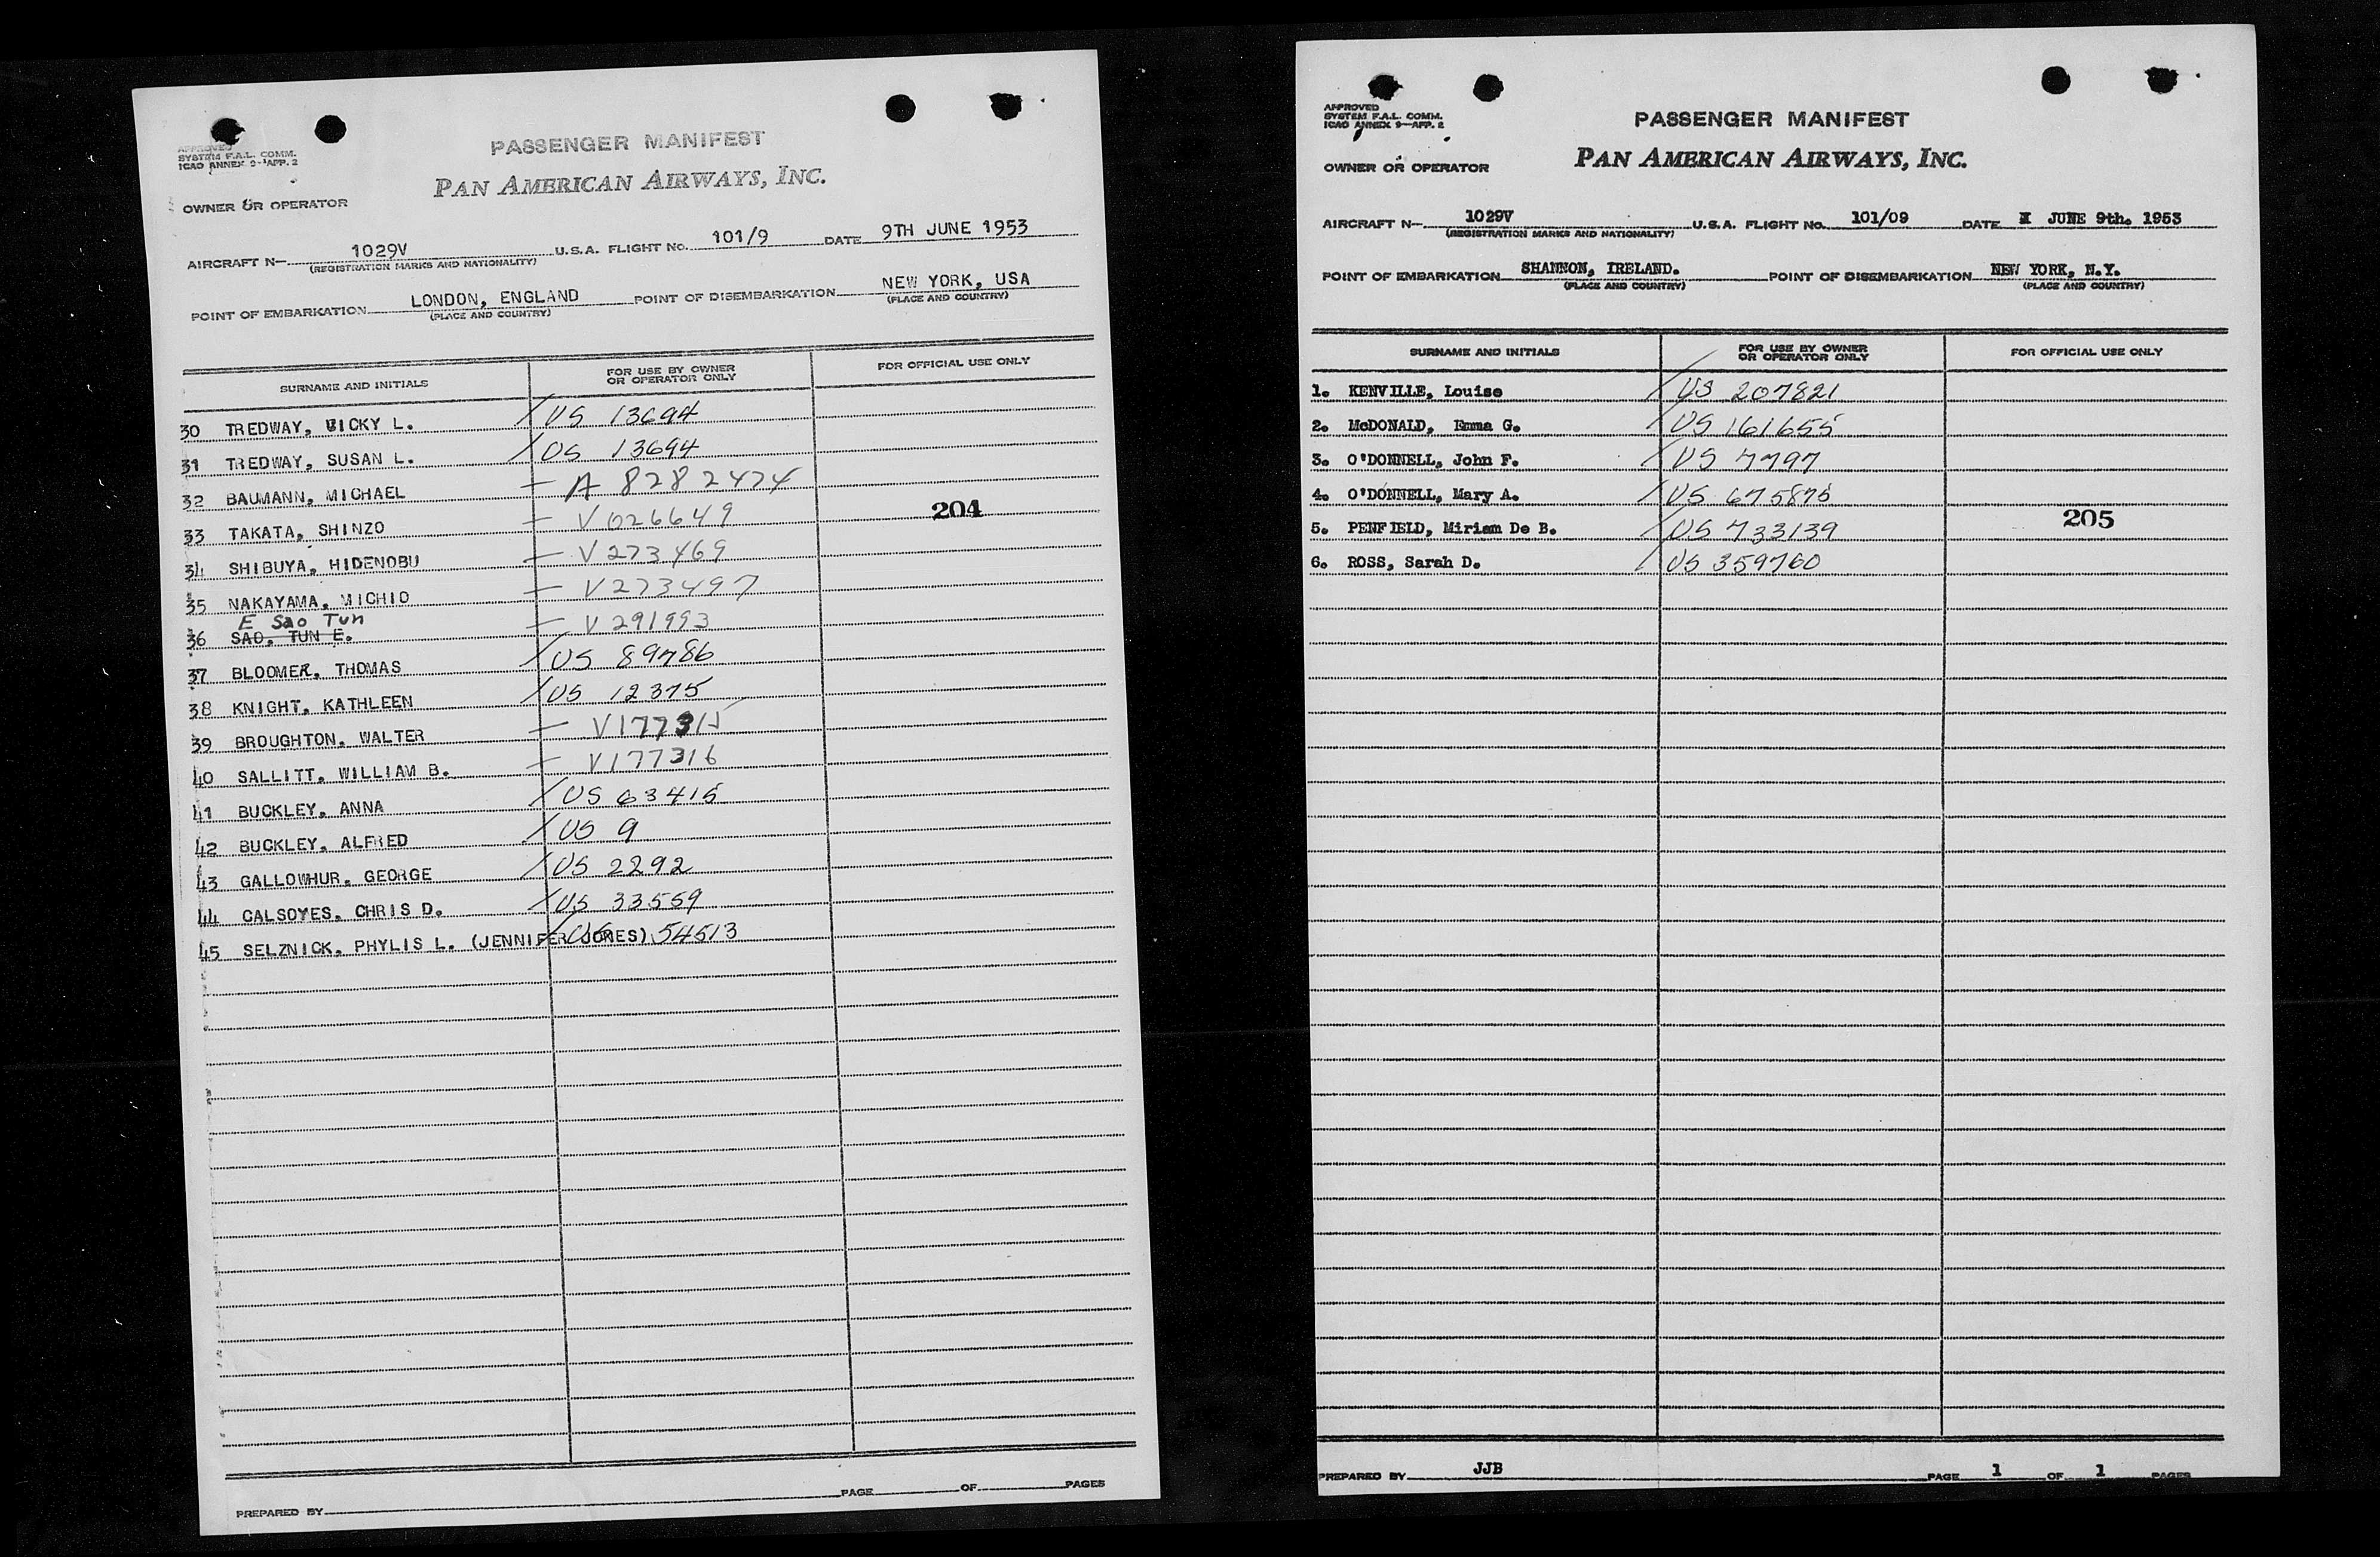 APPROVED
SYSTEM F.A.L. COMM.
ICAO ANNEX 9-APP. 2
PASSENGER MANIFEST
PAN AMERICAN AIRWAYS, INC.
OWNER OR OPERATOR
AIRCRAFT N- 1029V U.S.A. FLIGHT NO. 101/9 DATE 9TH JUNE 1953
(REGISTRATION MARKS AND NATIONALITY)
POINT OF EMBARKATION LONDON, ENGLAND POINT OF DISEMBARKATION NEW YORK, USA
(PLACE AND COUNTRY) (PLACE AND COUNTRY)
SURNAME AND INITIALS FOR USE BY OWNER OR OPERATOR ONLY FOR OFFICIAL USE ONLY
30 TREDWAY, VICKY L. / US 13694
31 TREDWAY, SUSAN L. / US 13694
32 BAUMANN, MICHAEL — A 8282474
33 TAKATA, SHINZO — V026649 204
34 SHIBUYA, HIDENOBU — V273469
35 NAKAYAMA, MICHIO — V273497
E Sao Tun
36 SAO, TUN E. — V291993
37 BLOOMER, THOMAS / US 89786
38 KNIGHT, KATHLEEN / US 12375
39 BROUGHTON, WALTER — V177315
40 SALLITT, WILLIAM B. — V177316
41 BUCKLEY, ANNA / US 63415
42 BUCKLEY, ALFRED / US 9
43 GALLOWHUR, GEORGE / US 2292
44 CALSOYES, CHRIS D. / US 33559
45 SELZNICK, PHYLIS L. (JENNIFER JONES) / US 54513
PREPARED BY PAGE OF PAGES
APPROVED
SYSTEM F.A.L. COMM.
ICAO ANNEX 9-APP. 2
PASSENGER MANIFEST
PAN AMERICAN AIRWAYS, INC.
OWNER OR OPERATOR
AIRCRAFT N- 1029V U.S.A. FLIGHT NO. 101/09 DATE X JUNE 9th. 1953
(REGISTRATION MARKS AND NATIONALITY)
POINT OF EMBARKATION SHANNON, IRELAND. POINT OF DISEMBARKATION NEW YORK, N.Y.
(PLACE AND COUNTRY) (PLACE AND COUNTRY)
SURNAME AND INITIALS FOR USE BY OWNER OR OPERATOR ONLY FOR OFFICIAL USE ONLY
1. KENVILLE, Louise / US 207821
2. McDONALD, Emma G. / US 161655
3. O'DONNELL, John F. / US 7797
4. O'DONNELL, Mary A. / US 675875
5. PENFIELD, Miriam De B. / US 733139 205
6. ROSS, Sarah D. / US 359760
PREPARED BY JJB PAGE 1 OF 1 PAGES